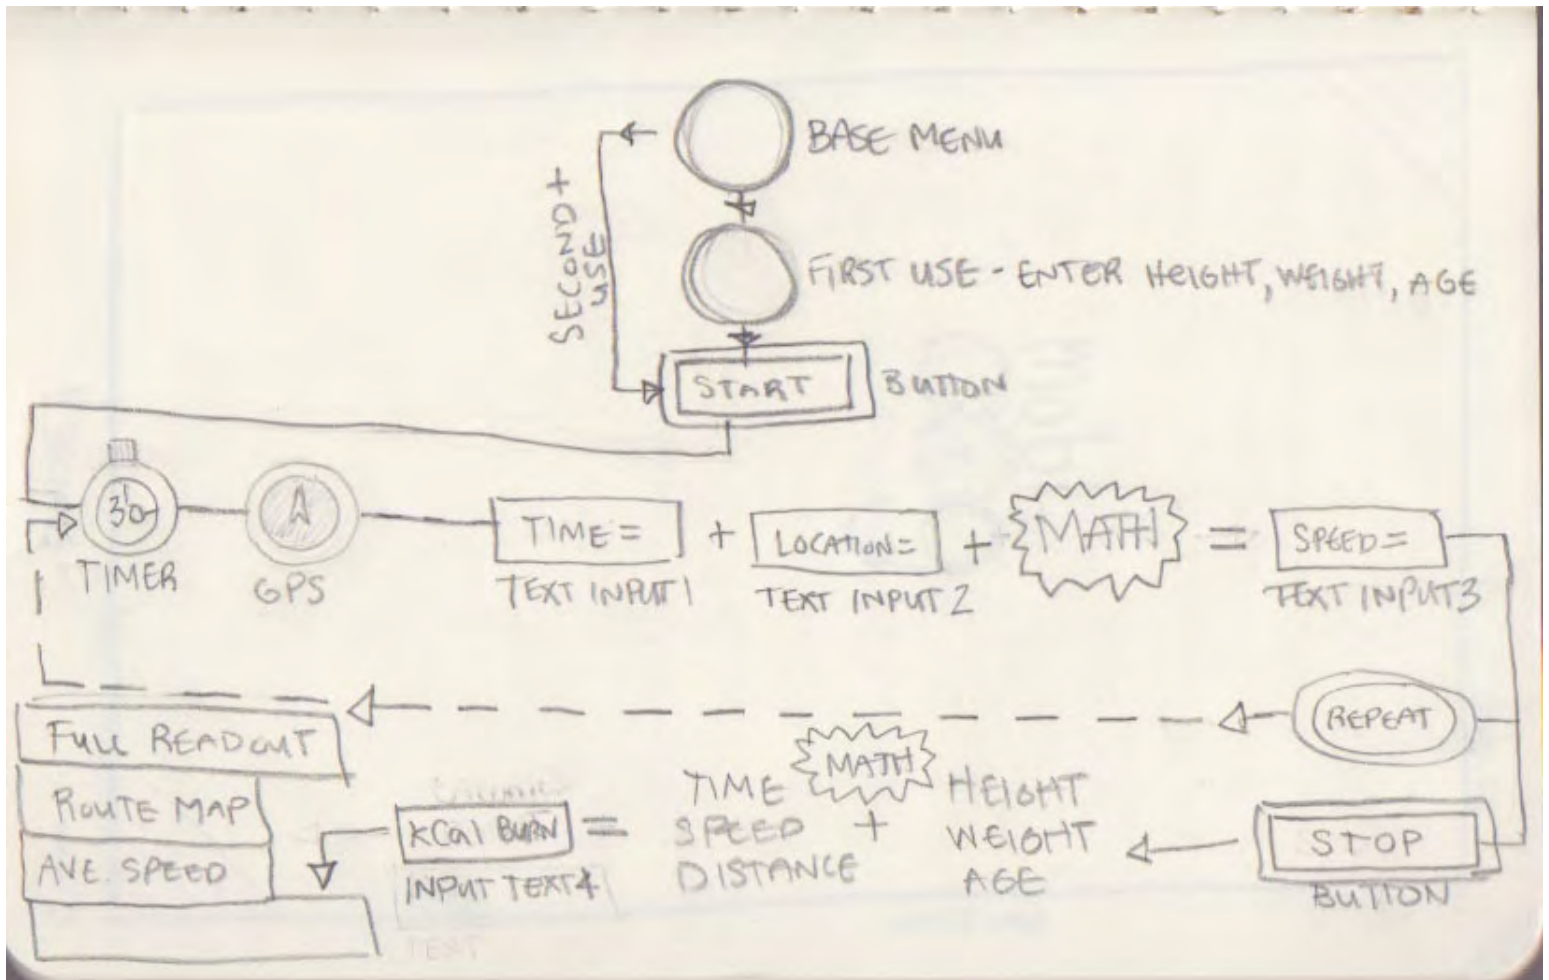 BASE MENU
SECOND+
USE
FIRST USE - ENTER HEIGHT, WEIGHT, AGE
START
BUTTON
30
TIMER
GPS
TIME =
TEXT INPUT 1
+
LOCATION=
TEXT INPUT 2
+
MATH
=
SPEED=
TEXT INPUT 3
REPEAT
FULL READOUT
ROUTE MAP
AVE. SPEED
kCal BURN
INPUT TEXT 4
=
TIME
SPEED
DISTANCE
MATH
+
HEIGHT
WEIGHT
AGE
STOP
BUTTON
TEXT